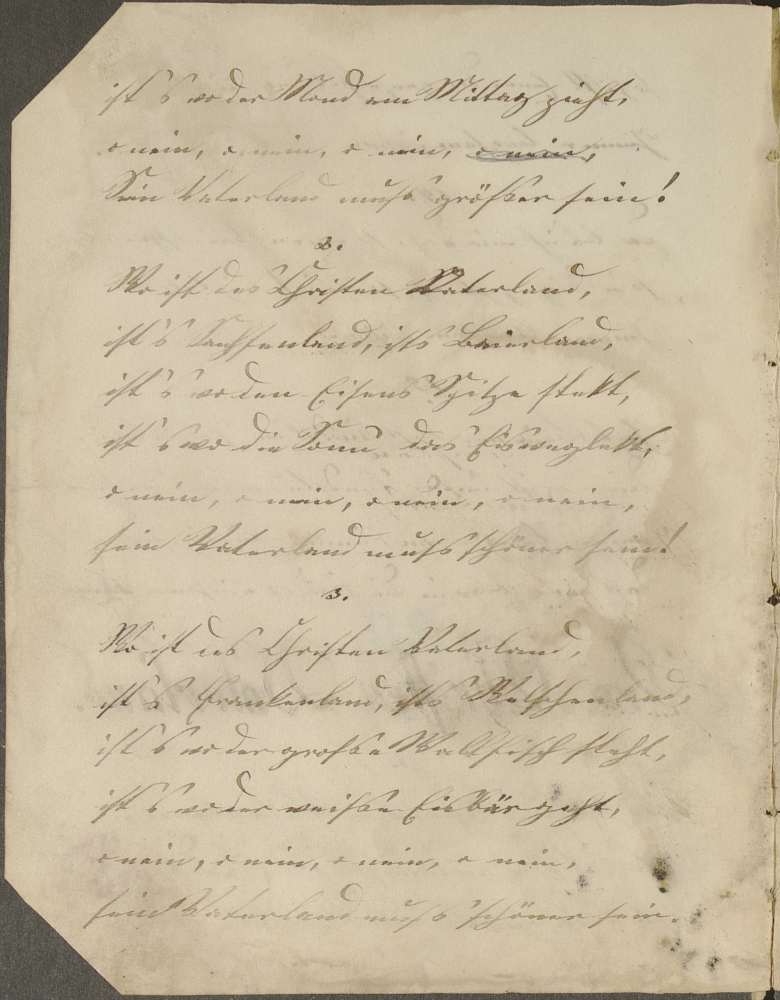 ist's wo der Mond am Mittag zieht,
o nein, o nein, o nein, o nein,
Sein Vaterland muß größer sein!
2.
Wo ist des Christen Vaterland,
ist's Sachsenland, ists Baierland,
ist's wo den Eisens Spitze stekt,
ist's wo die Sonn das Eis
o nein, o nein, o nein, o nein,
sein Vaterland muß schöner sein!
3.
Wo ist des Christen Vaterland,
ist's Frankenland, ists Welschenland,
ist's wo der große Wallfisch steht,
ist's wo der weiße Eisbär geht,
o nein, o nein, o nein, o nein,
sein Vaterland muß schöner sein.